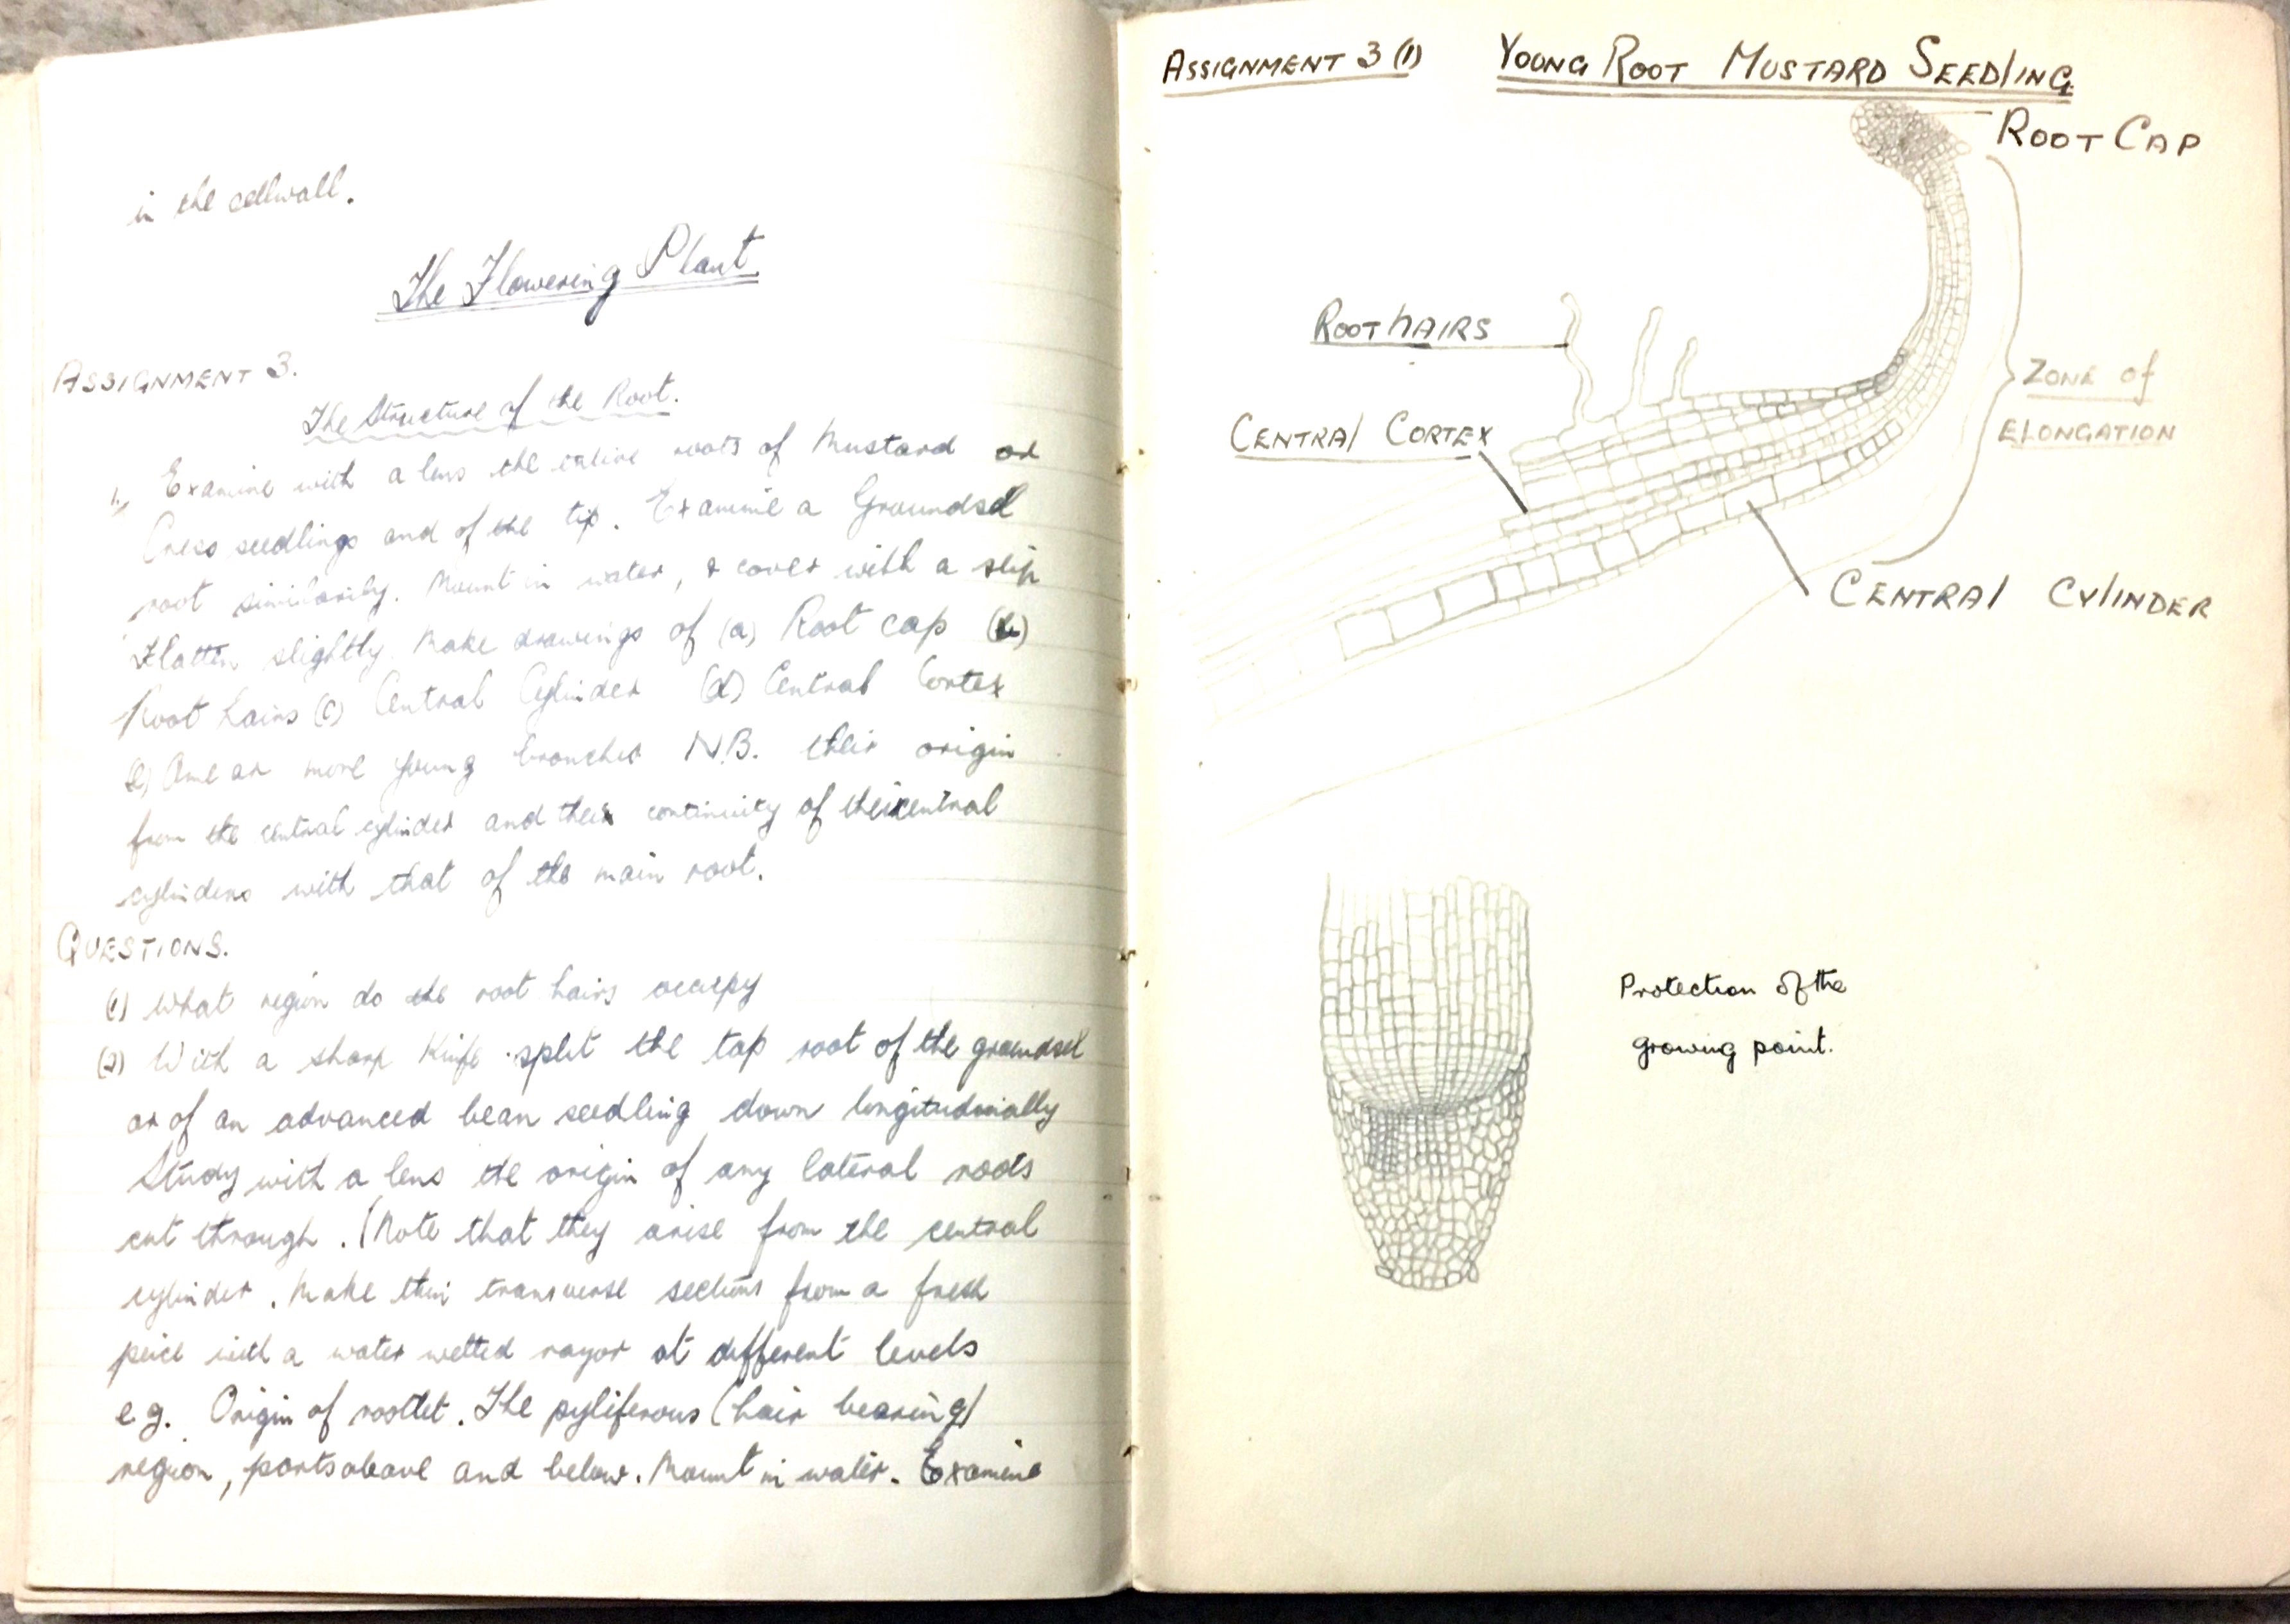 in the cellwall.
The Flowering Plant
ASSIGNMENT 3.
The Structure of the Root.
1, Examine with a lens the entire roots of Mustard or
Cress seedlings and of the tip. Examine a Groundsel
root similarily. Mount in water, & cover with a slip
Flatten slightly. Make drawings of (a) Root cap (b)
Root hairs (c) Central Cylinder (d) Central Cortex
(e) One or more young branches N.B. their origin
from the central cylinder and their continuity of their central
cylinders with that of the main root.
QUESTIONS.
(1) What region do the root hairs occupy
(2) With a sharp Knife split the tap root of the groundsel
or of an advanced bean seedling down longitudinally
Study with a lens the origin of any lateral roots
cut through. (Note that they arise from the central
cylinder. Make thin transverse sections from a fresh
peice with a water wetted rayor at different levels
eg. Origin of rootlet. The pyliferous (hair bearing)
region, parts above and below. Mount in water. Examine
ASSIGNMENT 3 (1) YOUNG ROOT MUSTARD SEEDLING
ROOT CAP
ROOT HAIRS
ZONE of
ELONGATION
CENTRAL CORTEX
CENTRAL CYLINDER
Protection of the
growing point.